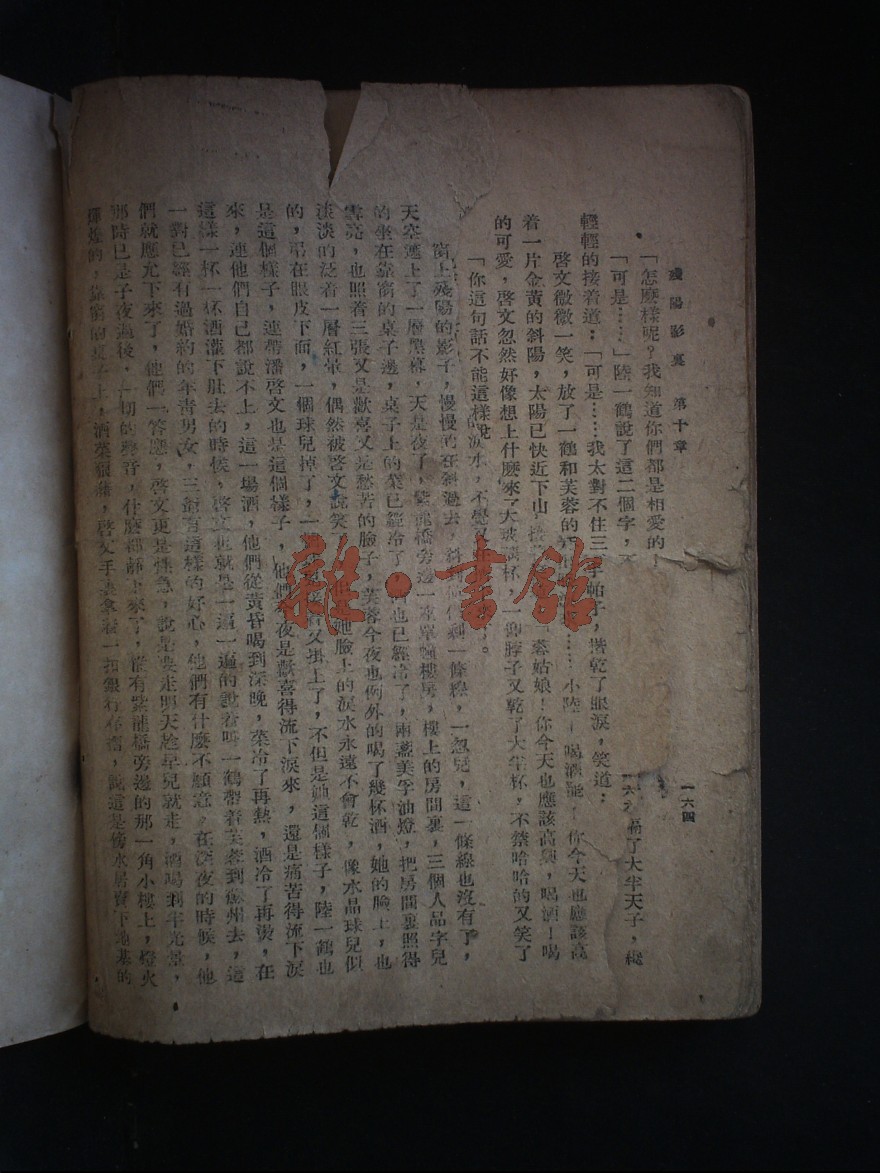 殘陽影裏 第十章
一六四
「怎麼樣呢？我知道你們都是相愛的
「可是……」陸一鶴說了這二個字，
隔了大半天子，纔
輕輕的接着道：「可是……我太對不住三
手帕子，揩乾了眼淚，笑道：
啓文微微一笑，放了一鶴和芙蓉的
小陸！喝酒
你今天也應該高
着一片金黃的斜陽，太陽已快近下山，
蓉姑娘！你今天也應該高興，喝酒！喝
的可愛，啓文忽然好像想上什麼來了大玻璃杯，
脖子又乾了大半杯，不禁哈哈的又笑了
「你這句話不能這樣說
淚水，不覺
窗上殘陽的影子，慢慢的在斜過去，斜
剩一條線，一忽兒，這一條線也沒有了，
天空遮上了一層黑幕，天是夜了，
龍橋旁邊一
單幢樓房，樓上的房間裏，三個人品字兒
的坐在靠窗的桌子邊，桌子上的菜已經冷了，
也已經冷了，兩盞美孚油燈，把房間裏照得
雪亮，也照着三張又是歡喜又是愁苦的臉子，芙蓉今夜也例外的喝了幾杯酒，她的臉上，也
淡淡的泛着一層紅暈，偶然被啓文說笑
她臉上的淚水永遠不會乾，像水晶球兒似
的，弔在眼皮下面，一個球兒掉了，一
又掛上了，不但是她這個樣子，陸一鶴也
是這個樣子，連帶潘啓文也是這個樣子，他們
夜是歡喜得流下淚來，還是痛苦得流下淚
來，連他們自己都說不上，這一場酒，他們從黃昏喝到深晚，菜冷了再熱，酒冷了再燙，在
這樣一杯一杯酒灌下肚去的時候，啓文也就是一遍一遍的說着叫一鶴帶着芙蓉到蘇州去，這
一對已經有過婚約的年青男女，三爺有這樣的好心，他們有什麼不願意，在深夜的時候，他
們就應允下來了，他們一答應，啓文更是性急，說是要走明天趁早兒就走，酒喝到半光景，
那時已是子夜過後，一切的聲音，什麼都靜下來了，惟有紫龍橋旁邊的那一角小樓上，燈火
輝煌的，靠窗的桌子上，酒菜狼藉，啓文手裏拿着一扣銀行存摺，說這是傍水居賣下地基的
雜·書館